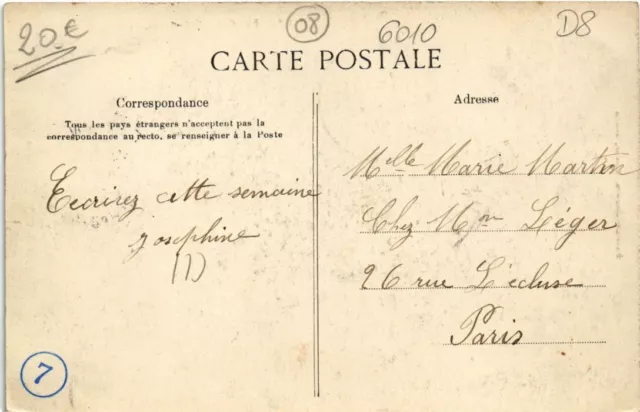 20.€
08
6010
D8
CARTE POSTALE
Correspondance
Tous les pays étrangers n'acceptent pas la
correspondance au recto, se renseigner à la Poste
Ecorirez cette semaine
Josephine
(1)
Adresse
Melle Marie Martin
Chez Mme Léger
26 rue L'ecluse
Paris
7